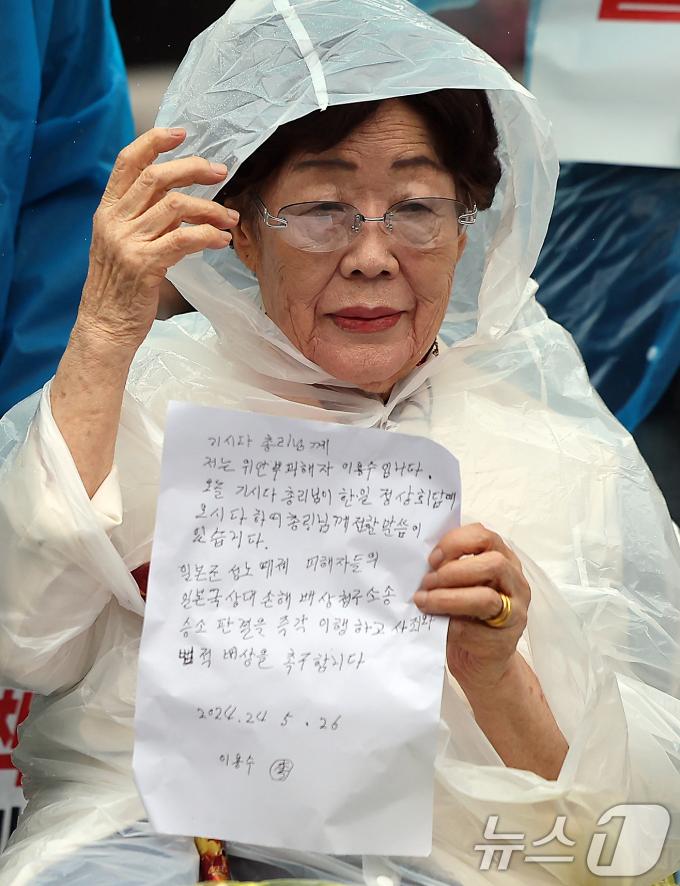 기시다 총리님께
저는 위안부피해자 이용수입니다.
오늘 기시다 총리님이 한일 정상회담에
오시다 하여 총리님께 전할 말씀이
있습니다.
일본군 성노예제 피해자들의
일본국 상대 손해 배상 청구소송
승소 판결을 즉각 이행하고 사죄와
법적 배상을 촉구합니다
2024.24 5.26
이용수
뉴스1